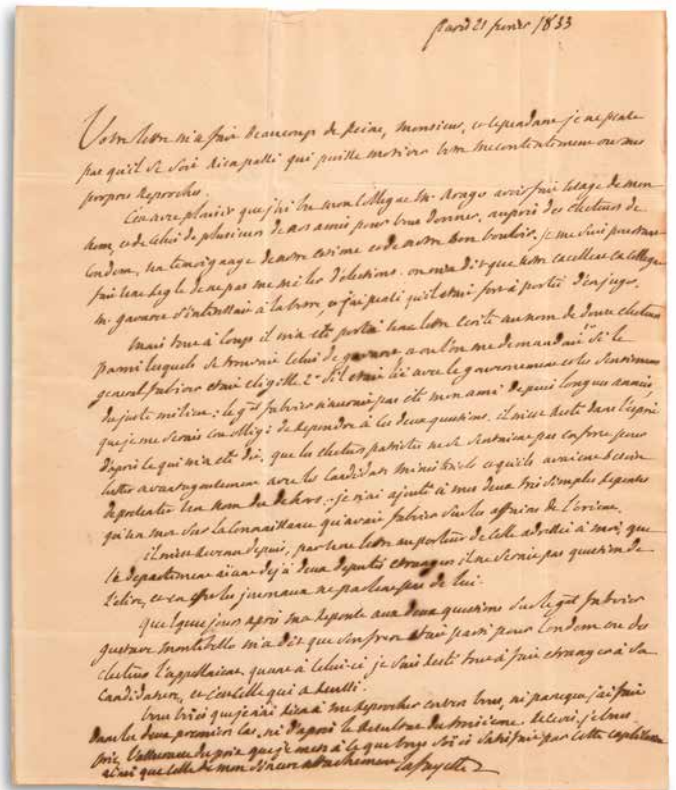 Paris 21 fevrier 1833
Votre lettre m'a fait beaucoup de peine, Monsieur, et cependant je ne pense
pas qu'il se soit rien passé qui puisse motiver votre mecontentement ou mes
propres reproches.
C'est avec plaisir que j'ai vu mon Collegue M. Arago avoir fait usage de mon
nom, et de celui de plusieurs de nos amis pour vous donner, auprès des electeurs de
Condom, un temoignage de notre estime et de notre bon vouloir. je me suis
fait une regle de ne pas me meler d'elections. on m'a dit que notre excellent Collegue
M. gavaret s'interessait à la votre, et j'ai pensé qu'il etait fort à portée d'en juger.
Mais tout à coup il m'a eté porté une lettre ecrite au nom de douze electeurs
parmi lesquels se trouvait celui de et où l'on me demandait 1° Si le
general fabvier etait eligible 2° S'il etait lié avec le gouvernement et les
du juste milieu: le gal fabvier n'aurait pas eté mon ami depuis longues années,
que je me serais cru obligé de repondre à ces deux questions. il m'est resté dans l'esprit
d'après ce qui m'a eté dit, que les electeurs patriotes ne se sentaient pas en force pour
lutter avantageusement avec les Candidats ministeriels et qu'ils avaient besoin
de presenter un nom du dehors. je n'ai ajouté à mes deux très simples reponses
qu'un mot sur la Connaissance qu'avait fabvier sur les affaires de l'orient.
il m'est revenu depuis, par une lettre au porteur de celle adressée à moi, que
le departement aiant dejà deux deputés etrangers il ne serait pas question de
l'elire, et en effet les journaux ne parlent pas de lui.
quelques jours après ma reponse aux deux questions sur le gal fabvier
gustave montebello m'a dit que son frere etait parti pour Condom où des
electeurs l'appellaient. quant à celui-ci je suis resté tout à fait etranger à sa
Candidature, et c'est celle qui a reussi.
Vous voiés que je n'ai rien à me reprocher envers vous, ni parceque j'ai fait
dans les deux premiers cas, ni d'après le resultat du troisieme. recevés, je vous
prie, l'assurance du prix que je mets à ce que vous soiés satisfait par cette explication
ainsi que celle de mon sincere attachement Lafayette